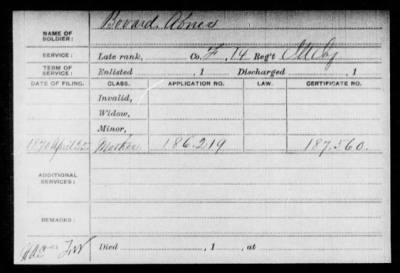 Bovard, Abner
NAME OF SOLDIER:
SERVICE: Late rank, Co. F, 14 Reg't
TERM OF SERVICE: Enlisted , 1 Discharged , 1
DATE OF FILING. CLASS. APPLICATION NO. LAW. CERTIFICATE NO.
Invalid,
Widow,
Minor,
1870 April 22 Mother 186.219 187.560.
ADDITIONAL SERVICES:
REMARKS:
Died , 1 , at